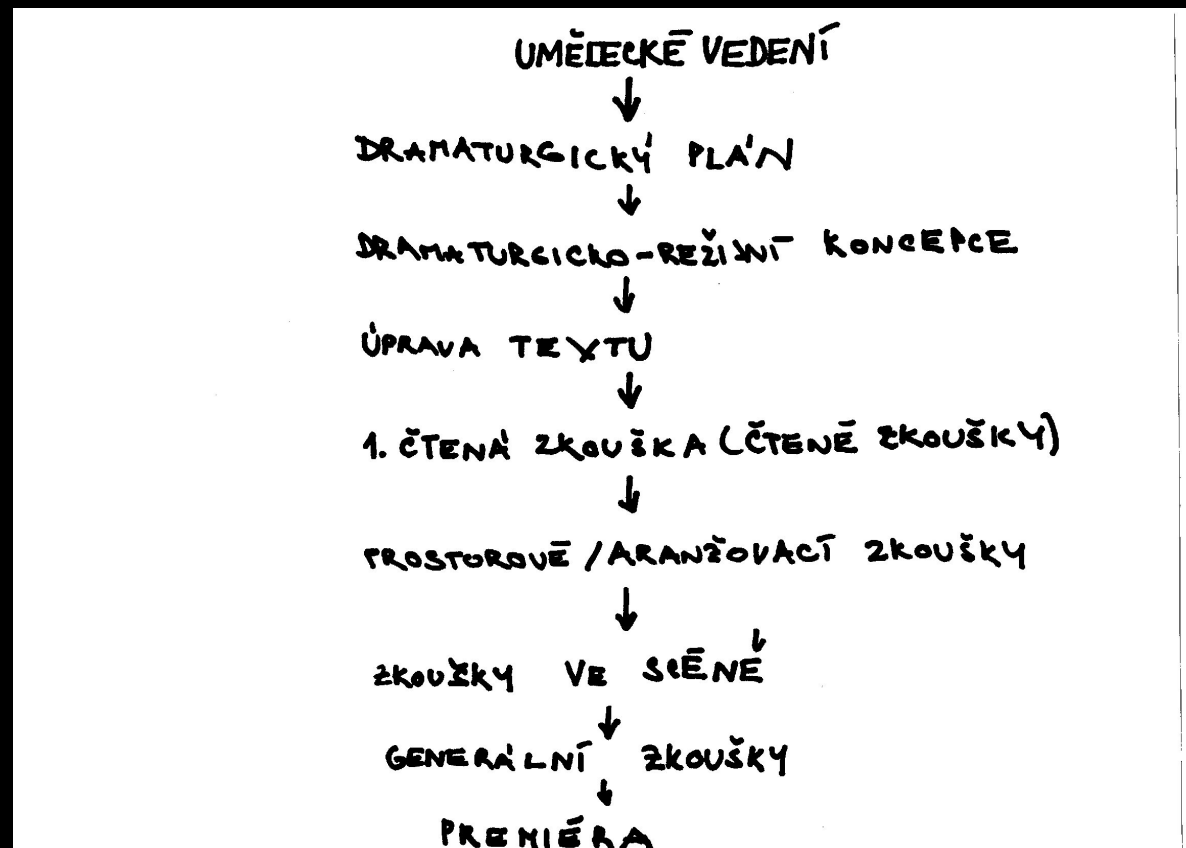 UMĚLECKÉ VEDENÍ
DRAMATURGICKÝ PLÁN
DRAMATURGICKO-REŽIJNÍ KONCEPCE
ÚPRAVA TEXTU
1. ČTENÁ ZKOUŠKA (ČTENÉ ZKOUŠKY)
PROSTOROVÉ / ARANŽOVACÍ ZKOUŠKY
ZKOUŠKY VE SCÉNĚ
GENERÁLNÍ ZKOUŠKY
PREMIÉRA